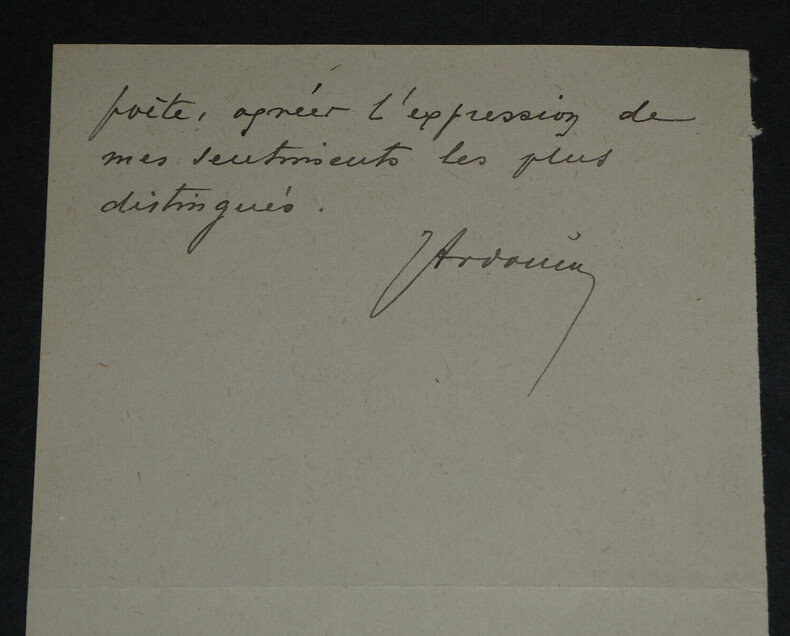 poète, agréer l'expression de
mes sentiments les plus
distingués.
J Ardouin